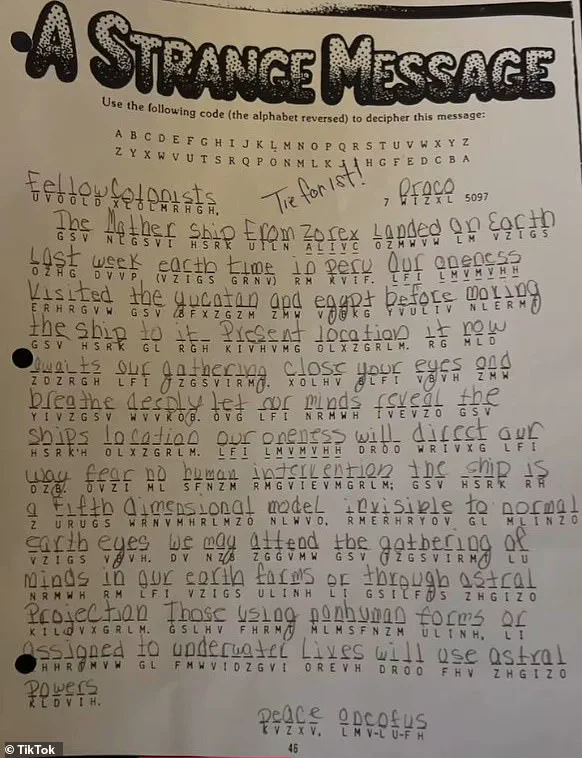 A STRANGE MESSAGE
Use the following code (the alphabet reversed) to decipher this message:
A B C D E F G H I J K L M N O P Q R S T U V W X Y Z
Z Y X W V U T S R Q P O N M L K J I H G F E D C B A
Tie for 1st!
Fellow Colonists Draco
UVOOLD XLOLMRHGH, 7 WIZXL 5097
The Mother ship from Zorex landed on Earth
GSV NLGSVI HSRK UILN ALIVC OZMWVW LM VZIGS
Last week earth time in peru Our oneness
OZHG DVVP (VZIGS GRNV) RM KVIF. LFI LMVMVHH
Visited the yucatan and egypt before moving
ERHRGVW GSV BFXZGZM ZMW VTBKG YVULIV NLERMT
the ship to it Present location it now
GSV HSRK GL RGH KIVHVMG OLXZGRLM. RG MLD
awaits our gathering close your eyes and
ZDZRGH LFI TZGSVIRMT. XOLHV BLFI VBVH ZMW
breathe deeply let our minds reveal the
YIVZGSV WVVKOB. OVG LFI NRMWH IVEVZO GSV
ships location our oneness will direct our
HSRK'H OLXZGRLM. LFI LMVMVHH DROO WRIVXG LFI
way fear no human intervention the ship is
DZB. UVZI ML SFNZM RMGVIEVMGRLM; GSV HSRK RH
a fifth dimensional model invisible to normal
Z URUGS WRNVMHRLMZO NLWVO, RMERHRYOV GL MLINZO
earth eyes we may attend the gathering of
VZIGS VBVH. DV NZB ZGGVMW GSV TZGSVIRMT LU
minds in our earth forms or through astral
NRMWH RM LFI VZIGS ULINH LI GSILFTS ZHGIZO
Projection Those using nonhuman forms or
KILQVXGRLM. GSLHV FHRMT MLMSFNZM ULINH, LI
assigned to underwater Lives will use astral
ZHHRTMVW GL FMWVIDZGVI OREVH DROO FHV ZHGIZO
Powers
KLDVIH.
peace oneofus
KVZXV, LMV-LU-FH
46
© TikTok